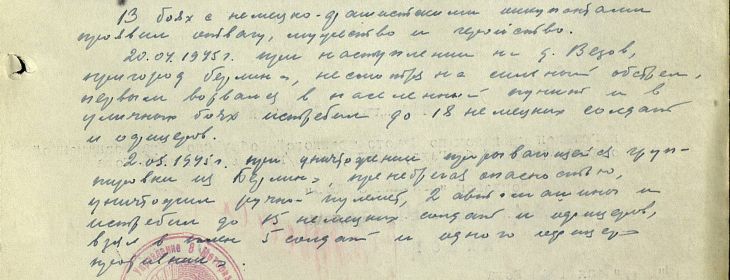 В боях с немецко-фашистскими оккупантами
проявил отвагу, мужество и геройство.
20.04.1945 г. при наступлении на д. Везов,
пригород Берлина, несмотря на сильный обстрел,
первым ворвался в населенный пункт и в
уличных боях истребил до 18 немецких солдат
и офицеров.
2.05.1945 г. при уничтожении прорывающейся груп-
пировки из Берлина, пренебрегая опасностью,
уничтожил ручной пулемет, 2 автомашины и
истребил до 15 немецких солдат и офицеров,
взял в плен 5 солдат и одного офицера
противника.
Управление